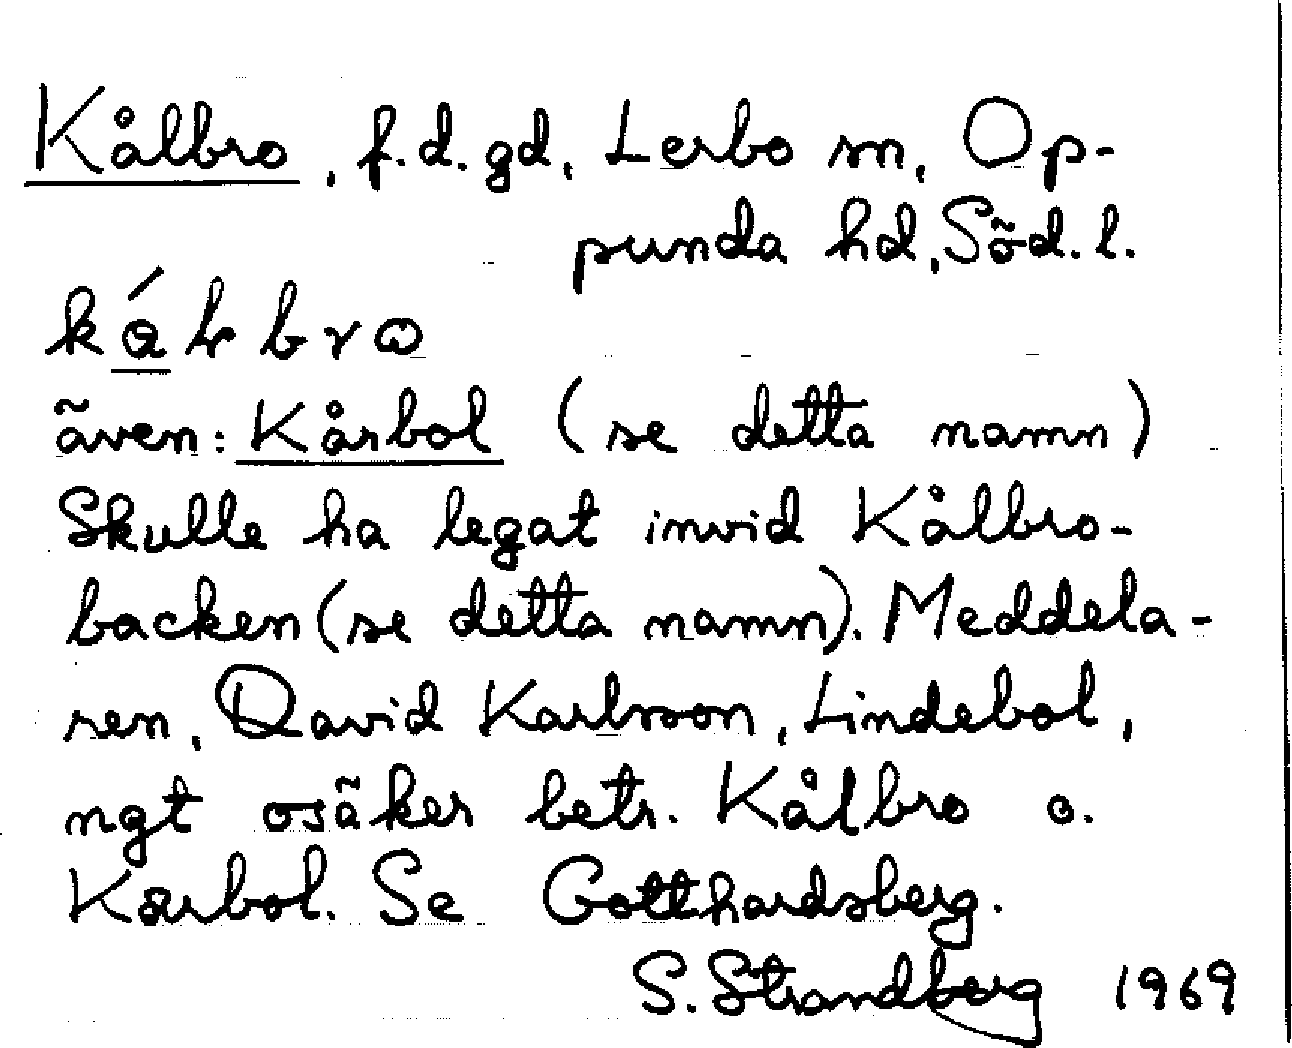 Kålbro, f.d. gd, Lerbo sn, Op-
punda hd, Söd. l.
även: Kårbol (se detta namn)
Skulle ha legat invid Kålbro-
backen (se detta namn). Meddela-
ren, David Karlsson, Lindebol,
ngt osäker betr. Kålbro o.
Kårbol. Se Gotthardsberg.
S. Strandberg 1969